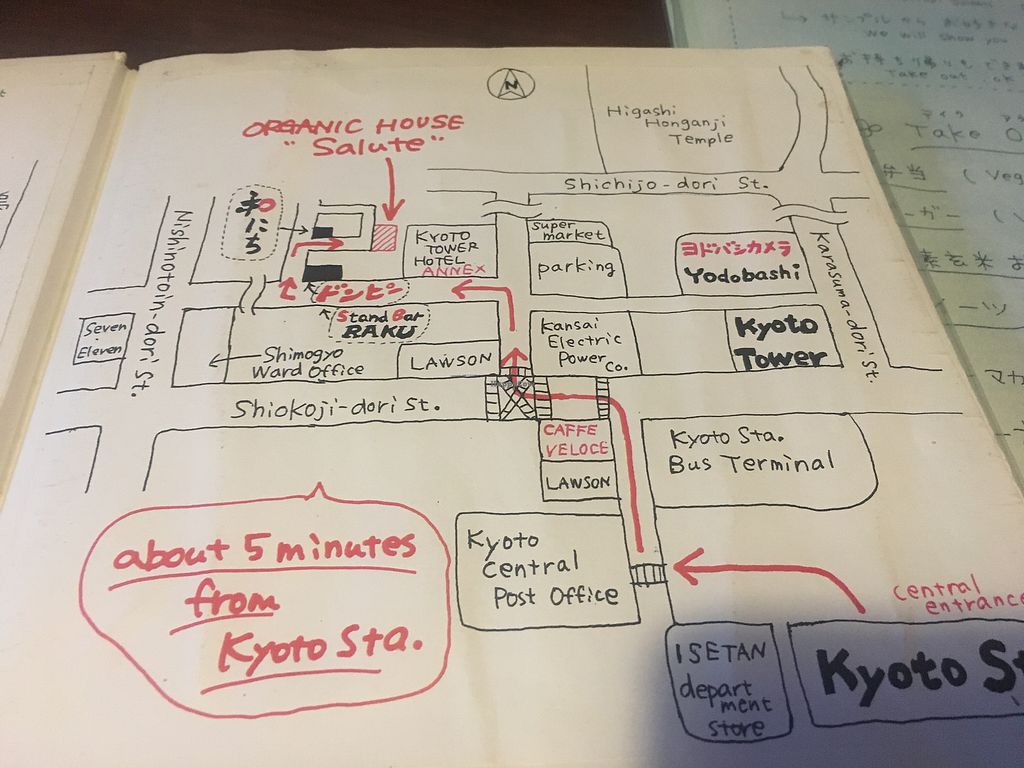 N
Higashi
Honganji
Temple
ORGANIC HOUSE
"Salute"
Shichijo-dori St.
Nishinotoin-dori St.
KYOTO
TOWER
HOTEL
ANNEX
super
market
parking
ヨドバシカメラ
Yodobashi
Karasuma-dori St.
ドンピン
Stand Bar
RAKU
Seven
Eleven
Shimogyo
Ward Office
LAWSON
Kansai
Electric
Power
Co.
Kyoto
Tower
Shiokoji-dori St.
CAFFE
VELOCE
LAWSON
Kyoto Sta.
Bus Terminal
about 5 minutes
from
Kyoto Sta.
Kyoto
Central
Post Office
Central
entrance
ISETAN
depart
ment
store
Kyoto St
We will show you
Take out ok
Take O
弁当 (Veg